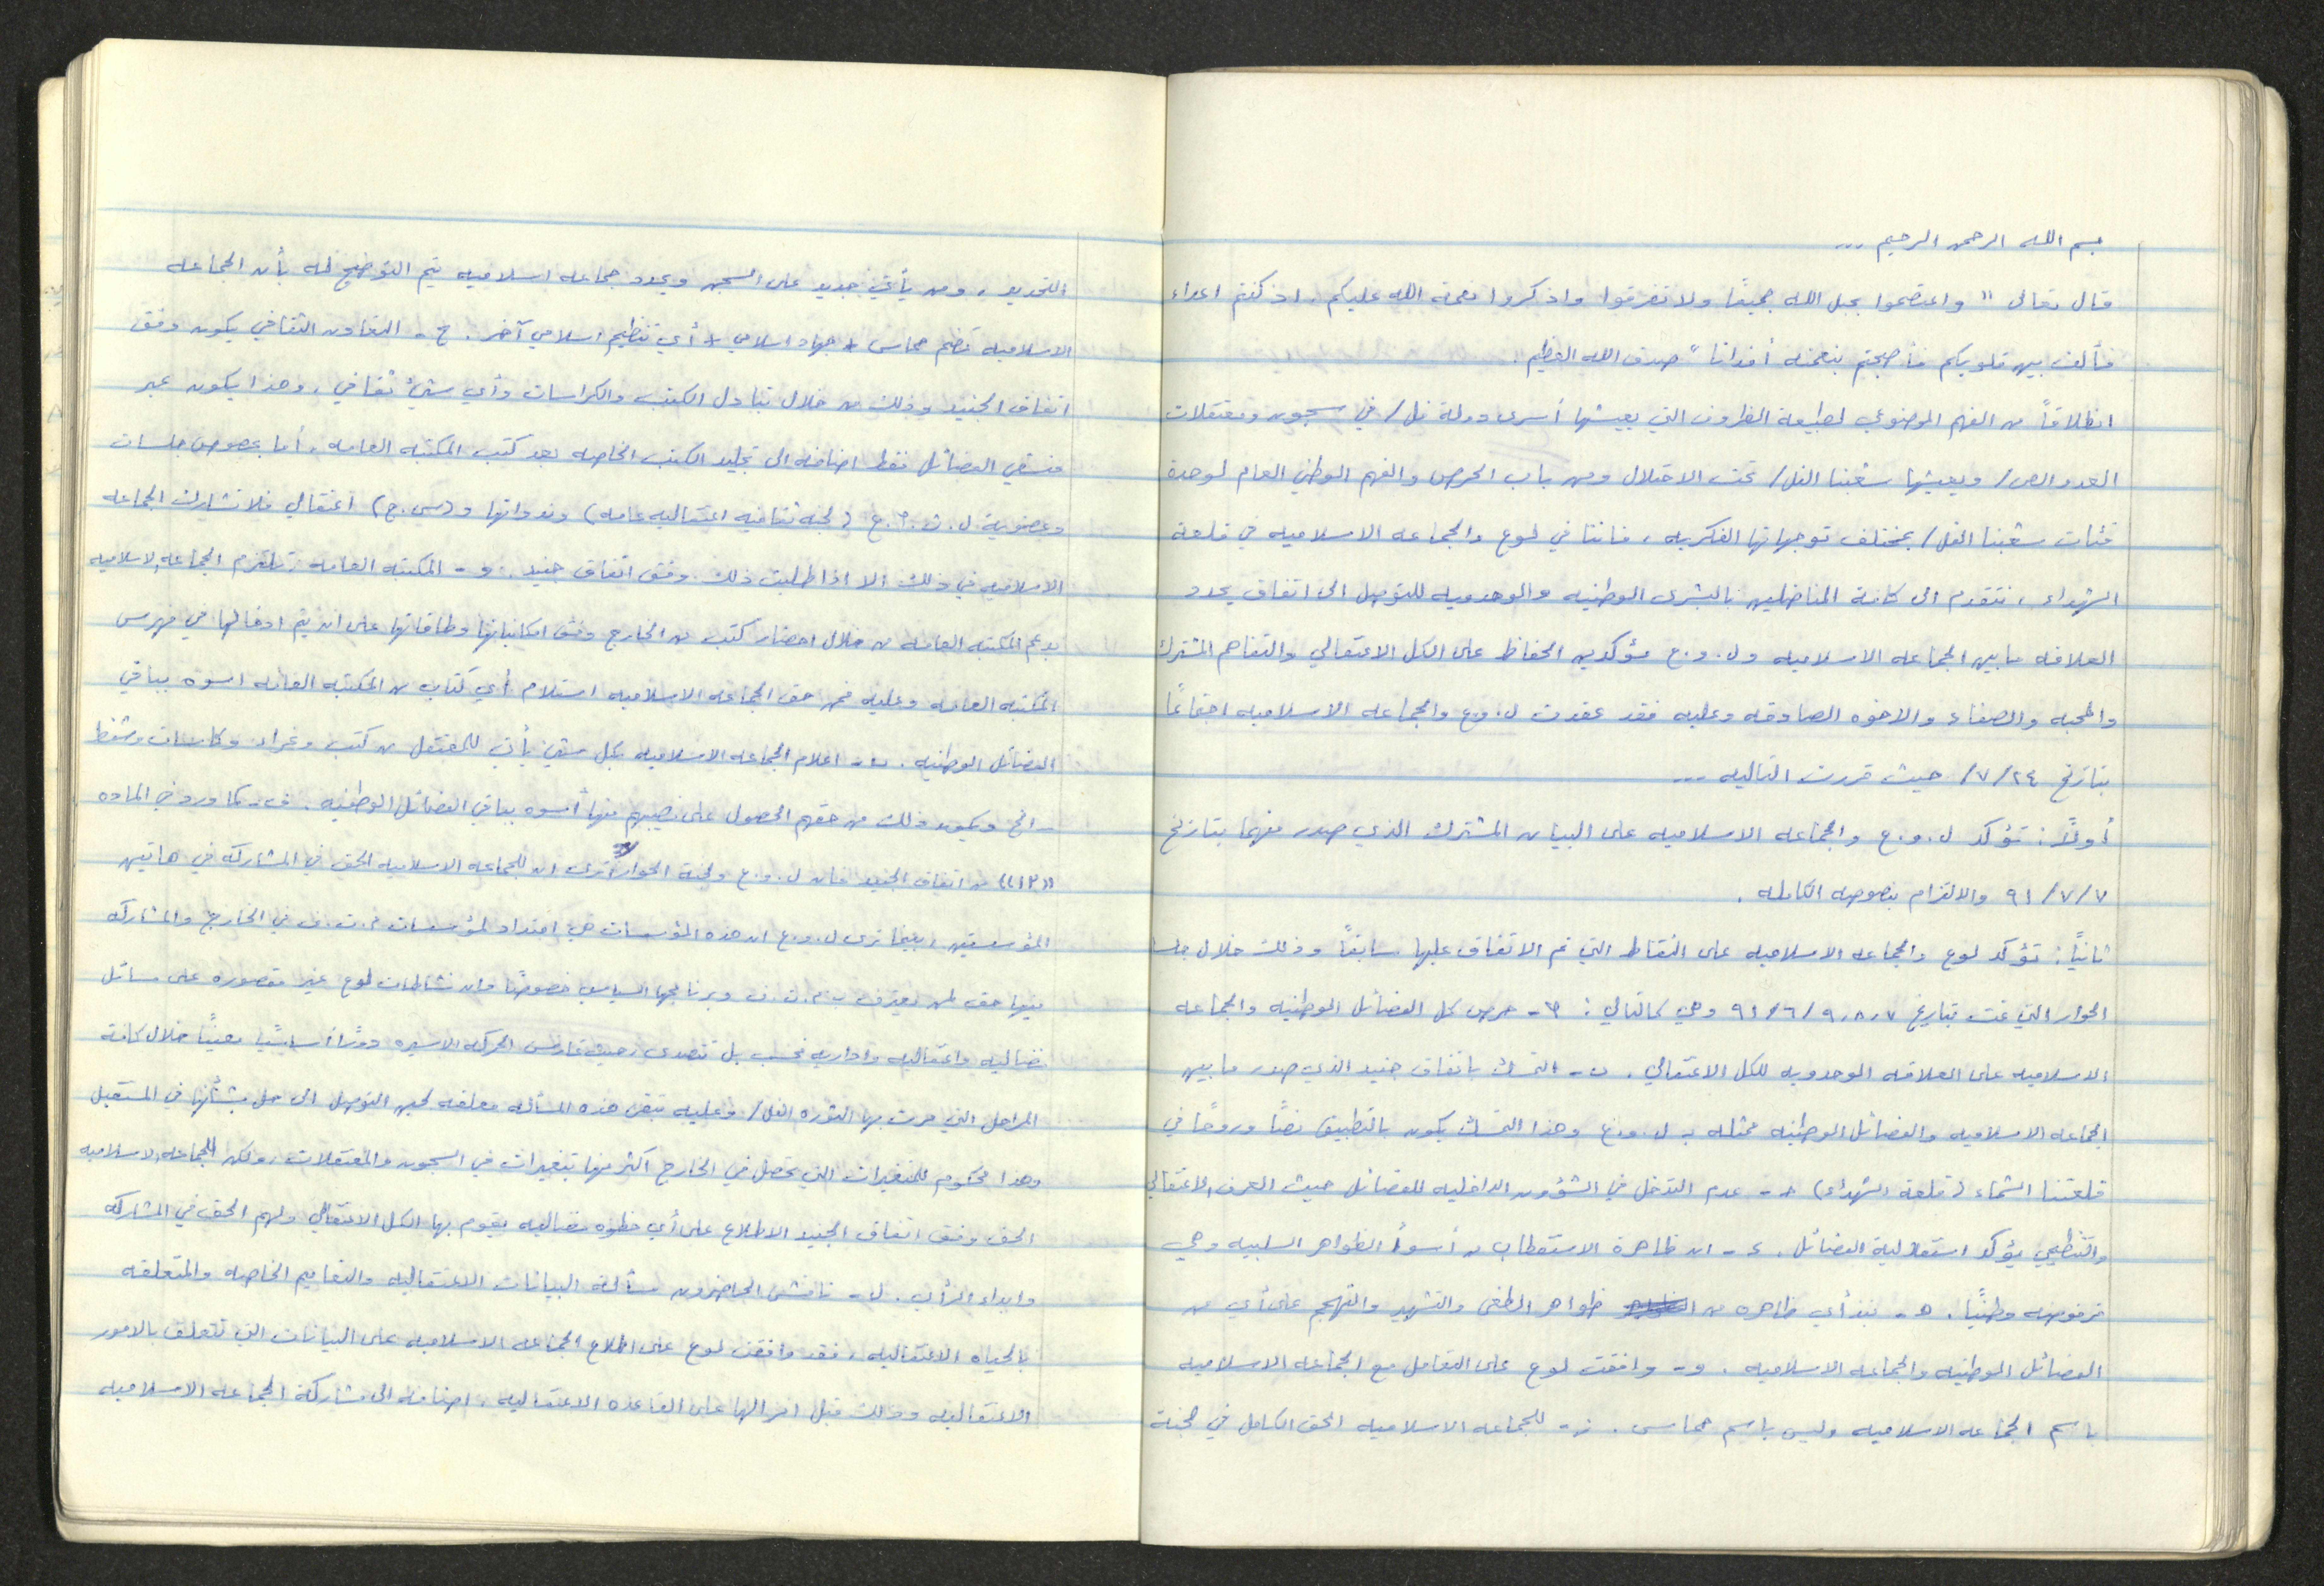 بسم الله الرحمن الرحيم ...
قال تعالى " واعتصموا بحبل الله جميعًا ولا تفرقوا واذكروا نعمة الله عليكم ، اذ كنتم اعداء
فألف بين قلوبكم فأصبحتم بنعمته أخوانا " صدق الله العظيم .
انطلاقاً من الفهم الموضوعي لطبيعة الظروف التي يعيشها أسرى دولة فل/ في سجون ومعتقلات
العدو الص/ ويعيشها شعبنا الفل/ تحت الاحتلال ومن باب الحرص والفهم الوطني العام لوحدة
فئات شعبنا الفل/ بمختلف توجهاتها الفكريه ، فاننا في لوع والجماعه الاسلاميه في قلعة
الشهداء ، نتقدم الى كافة المناضلين بالبشرى الوطنيه والوحدويه للتوصل الى اتفاق يحدد
العلاقه مابين الجماعه الاسلاميه ول.و.ع مؤكدين الحفاظ على الكل الاعتقالي والتفاهم المشترك
والمحبه والصفاء والاخوه الصادقه وعليه فقد عقدت ل.وع والجماعه الاسلاميه اجتماعًا
بتاريخ ٢٤/٧/ حيث قررت التاليه ...
أولاً : تؤكد ل.و.ع والجماعه الاسلاميه على البيان المشترك الذي صدر منهما بتاريخ
٧/٧/٩١ والالتزام بنصوصه الكامله .
ثانيًا : تؤكد لوع والجماعه الاسلاميه على النقاط التي تم الاتفاق عليها سابقاً وذلك خلال
الحوار التي تمت بتاريخ ٧،٨،٩/٦/٩١ وهي كالتالي : أ- حرص كل الفصائل الوطنيه والجماعه
الاسلاميه على العلاقه الوحدويه للكل الاعتقالي . ب- التمسك باتفاق جنيد الذي صدر مابين
الجماعه الاسلاميه والفصائل الوطنيه ممثله بـ ل.و.ع وهذا التمسك يكون بالتطبيق نصًا وروحًا في
قلعتنا الشماء (قلعة الشهداء) ج- عدم التدخل في الشؤون الداخليه للفصائل حيث العرف الاعتقالي
والتنظيمي يؤكد استقلالية الفصائل . د- ان ظاهرة الاستقطاب من أسوأ الظواهر السلبيه وهي
مرفوضه وطنيًا . هـ- نبذ أي ظاهره من ظواهر الطعن والتشهير والتهجم على أي من
الفصائل الوطنيه والجماعه الاسلاميه . و- وافقت لوع على التعامل مع الجماعه الاسلاميه
باسم الجماعه الاسلاميه وليس باسم حماس . ز- للجماعه الاسلاميه الحق الكامل في لجنة
ومن يأتي جديد على السجن ويحدد جماعه اسلاميه يتم التوضيح له بأن الجماعه
الاسلاميه تضم حماس + جهاد اسلامي + أي تنظيم اسلامي آخر . ح- التعاون الثقافي يكون وفق
اتفاق الجنيد وذلك من خلال تبادل الكتب والكراسات وأي شيئ ثقافي ، وهذا يكون عبر
الفصائل فقط اضافه الى تجليد الكتب الخاصه بعد كتب المكتبه العامه ، أما بخصوص جلسات
وعضوية ل.ث.أ.ع (لجنه ثقافيه اعتقاليه عامه) وندواتها و (س.ج) اعتقالي فلا تشارك الجماعه
الاسلاميه في ذلك الا اذا طلبت ذلك وفق اتفاق جنيد . و- المكتبه العامه : تلتزم الجماعه الاسلاميه
بدعم المكتبه العامه من خلال احضار كتب من الخارج وفق امكانياتها وطاقاتها على ان يتم ادخالها في فهرس
المكتبه العامه وعليه فمن حق الجماعه الاسلاميه استلام أي كتاب من المكتبه العامه اسوه بباقي
الفصائل الوطنيه . اعلام الجماعه الاسلاميه بكل شيئ يأتي للمعتقل من كتب
- الخ ويكون ذلك من حقهم الحصول على نصيبهم منها أسوه بباقي الفصائل الوطنيه . كما ورد في الماده
«١٣» من اتفاق الجنيد فان ل.و.ع ولجنة الحوار ترى ان للجماعه الاسلاميه الحق في المشاركه في هاتين
المؤسستين ، بينما ترى ل.و.ع ان هذه المؤسسات هي امتداد لمؤسسات م.ت.ف في الخارج والمشاركه
فيها حق لمن يعترف بـ م.ت.ف وبرنامجها السياسي خصوصًا وان نشاطات لوع غير مقصوره على مسائل
نضاليه واعتقاليه واداريه فحسب بل تتعدى ، حيث تمارس الحركه الاسيره دورًا أساسيًا معينًا خلال كافة
المراحل التي مرت بها الثوره الفل/ وعليه تبقى هذه المسأله معلقه لحين التوصل الى حل بشأنها في المستقبل
وهذا محكوم للمتغيرات التي تحصل في الخارج اكثر منها بتغيرات في السجون والمعتقلات ، ولكن للجماعه الاسلاميه
الحق وفق اتفاق الجنيد الاطلاع على أي خطوه نضاليه يقوم بها الكل الاعتقالي ولهم الحق في المشاركه
وابداء الرأي . ل- ناقش الحاضرون مسألة البيانات الاعتقاليه والتعاميم الخاصه والمتعلقه
بالحياه الاعتقاليه ، فقد وافقت لوع على اطلاع الجماعه الاسلاميه على البيانات التي تتعلق بالامور
الاعتقاليه وذلك قبل انزالها على القاعده الاعتقاليه ، اضافه الى مشاركة الجماعه الاسلاميه